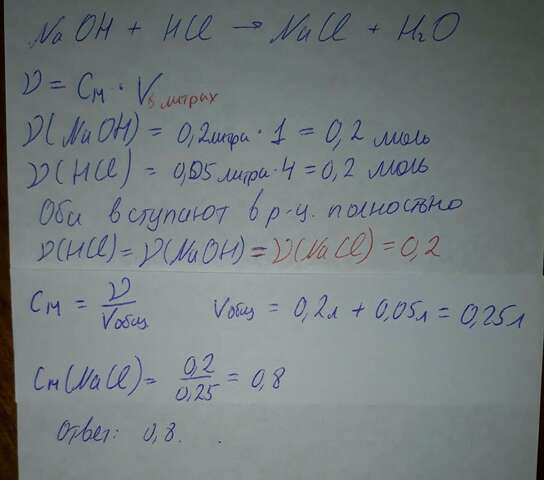 NaOH + HCl → NaCl + H₂O
ν = Cм · V в литрах
ν(NaOH) = 0,2литра · 1 = 0,2 моль
ν(HCl) = 0,05 литра · 4 = 0,2 моль
Оба вступают в р-ц. полностью
ν(HCl) = ν(NaOH) = ν(NaCl) = 0,2
Cм = ν / Vобщ Vобщ = 0,2л + 0,05л = 0,25л
Cм(NaCl) = 0,2 / 0,25 = 0,8
Ответ: 0,8.